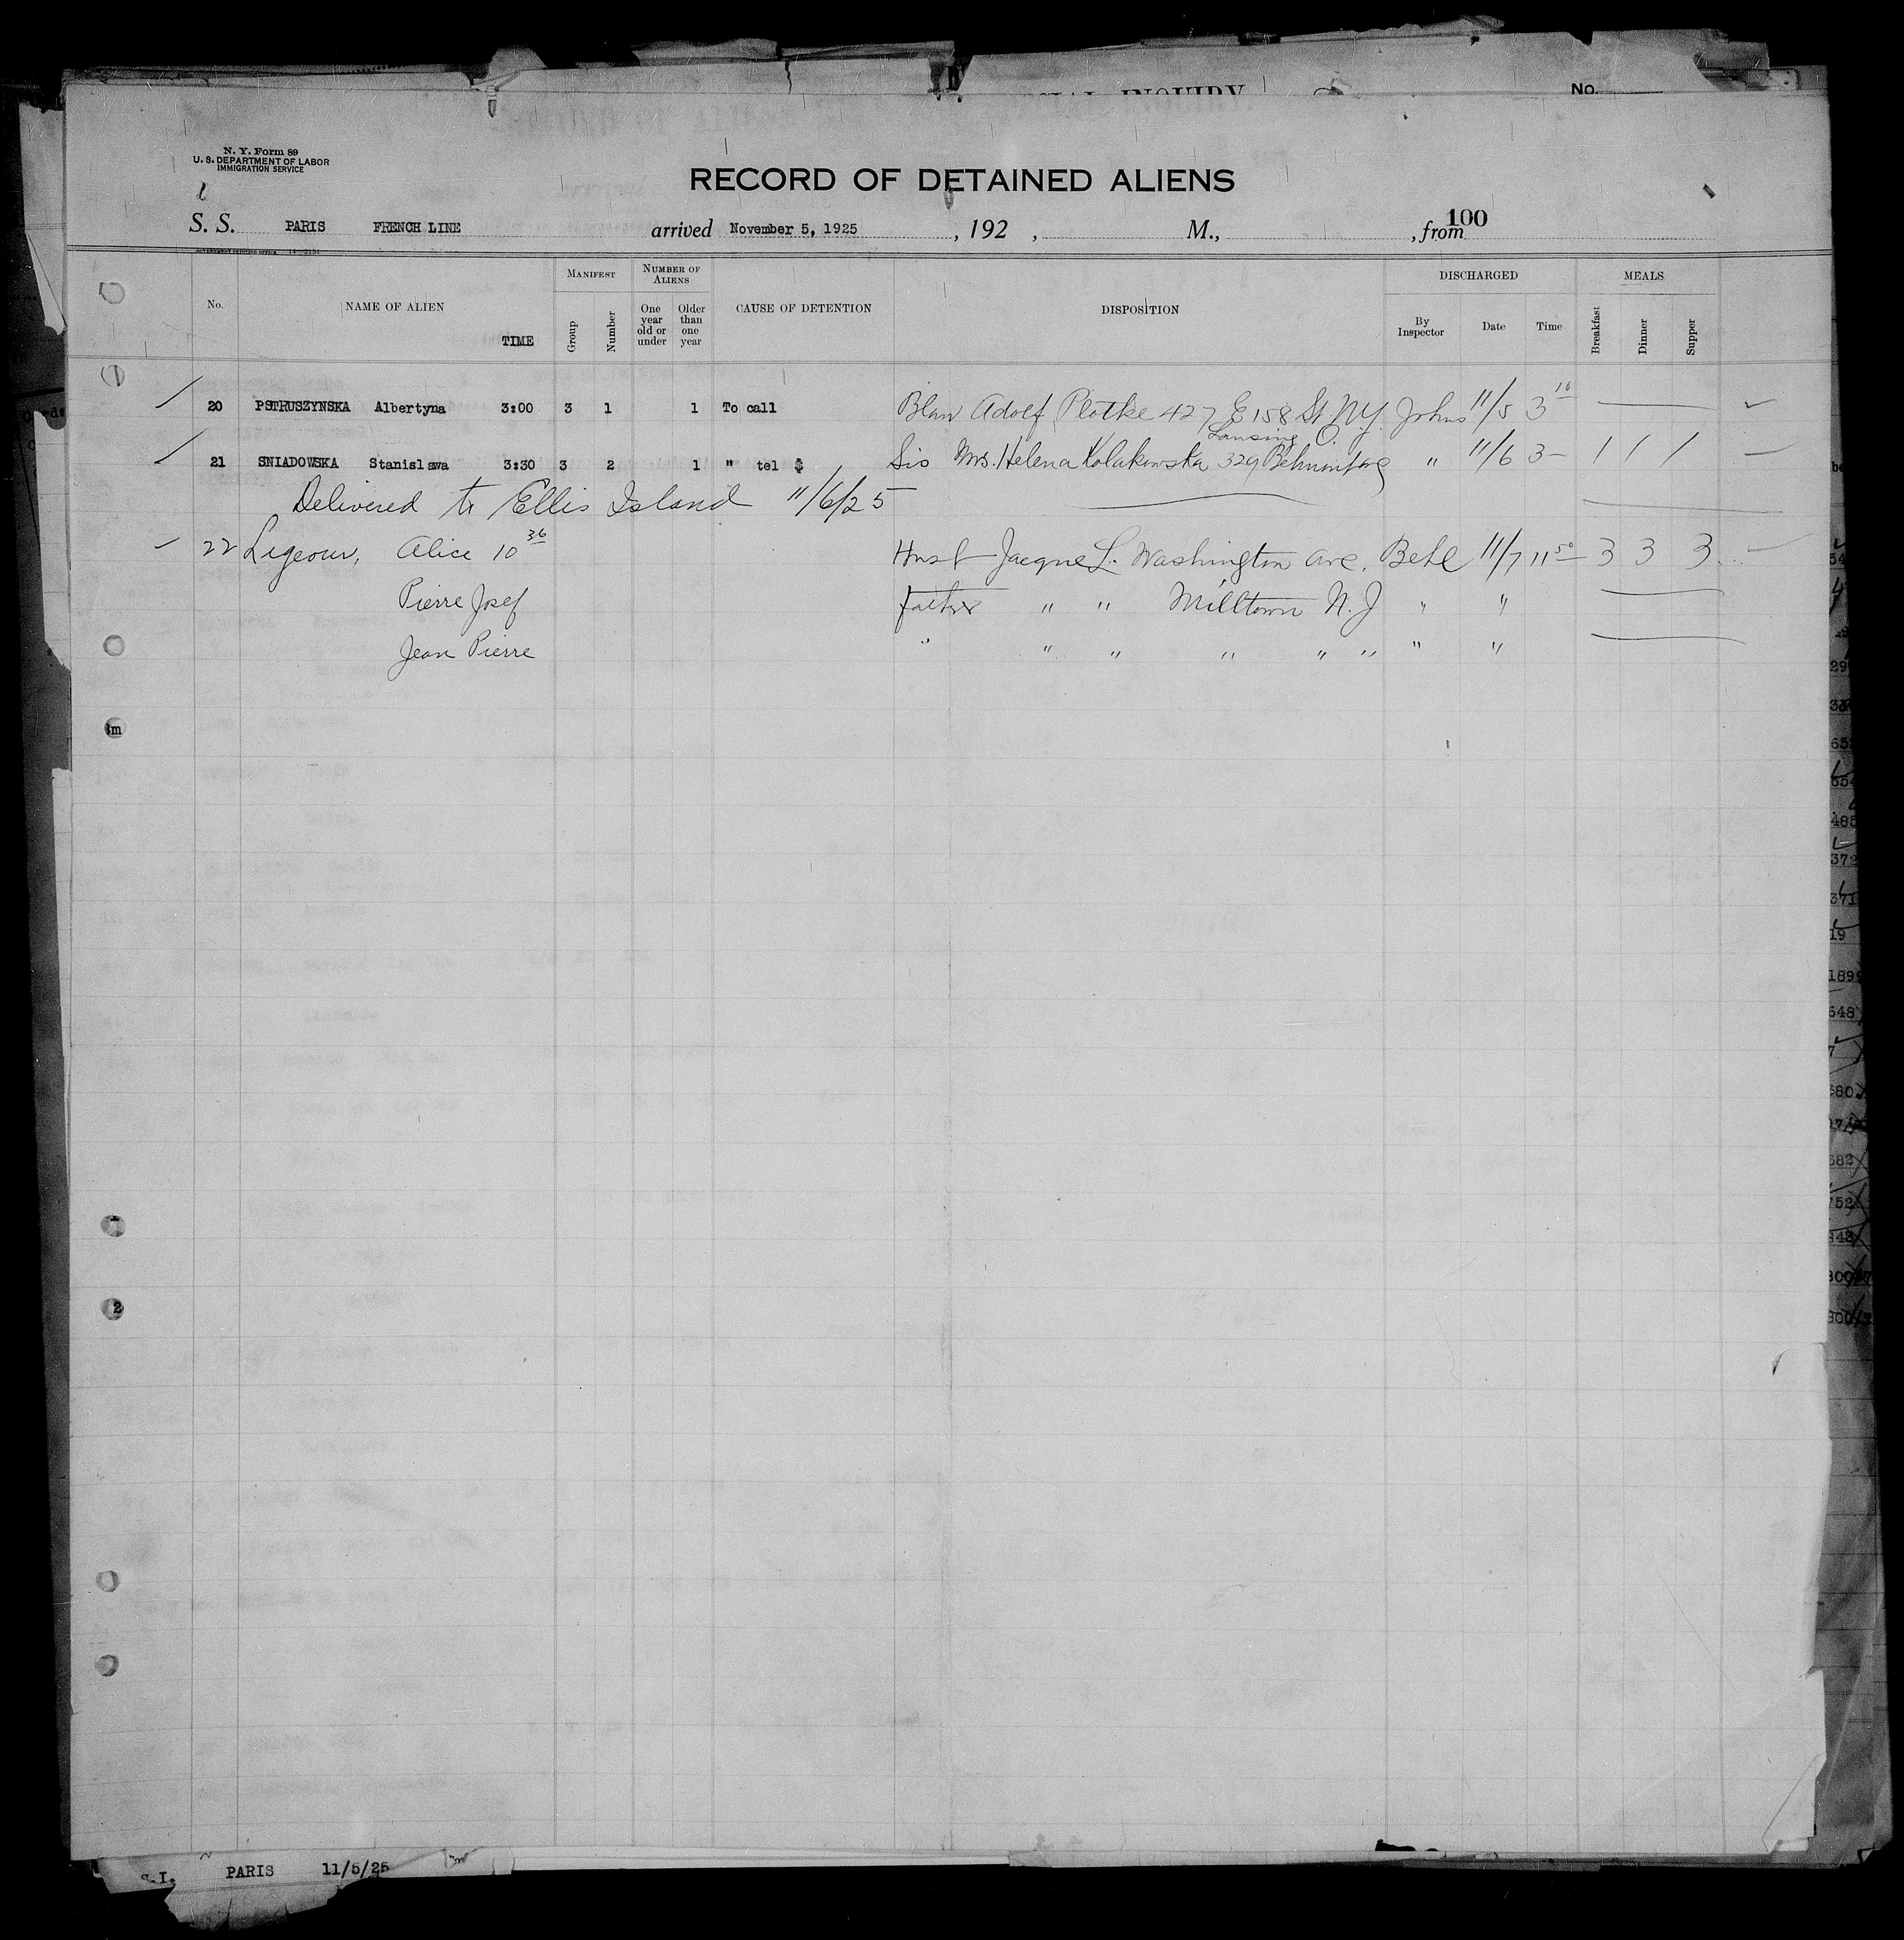 SPECIAL INQUIRY No.
N. Y. Form 89
U. S. DEPARTMENT OF LABOR
IMMIGRATION SERVICE
RECORD OF DETAINED ALIENS
S. S. PARIS FRENCH LINE arrived November 5, 1925, 192 , M., , from 100
No. NAME OF ALIEN TIME MANIFEST Group Number NUMBER OF ALIENS One year old or under Older than one year CAUSE OF DETENTION DISPOSITION DISCHARGED By Inspector Date Time MEALS Breakfast Dinner Supper
20 PSTRUSZYNSKA Albertyna 3:00 3 1 1 To call Adolf Plotke 427 E 158 St. N.Y. Johns 11/5 3 10
Lansing O.
21 SNIADOWSKA Stanislawa 3:30 3 2 1 " tel $ Sis Mrs. Helena Kolakowska 329 " 11/6 3— 1 1 1
Delivered to Ellis Island 11/6/25
22 Ligeour, Alice 10 36 Husb Jacque L. Washington Ave. Behl 11/7 11 50 3 3 3
Pierre Josef father " " Milltown N. J " "
Jean Pierre " " " " " " " "
m
2
S.I. PARIS 11/5/25